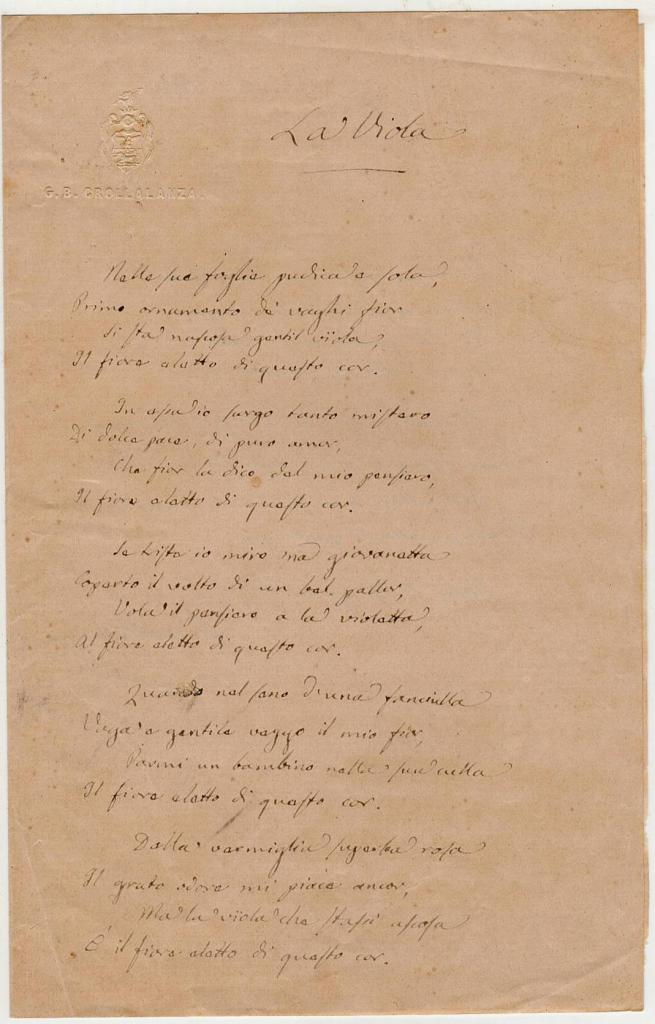 La Viola
G. B. CROLLALANZA.
Nelle sue foglie pudica e sola,
Primo ornamento de' vaghi fior
Si sta nascosa gentil viola,
Il fiore eletto di questo cor.
In essa io scorgo tanto mistero
Di dolce pace, di puro amor,
Che fior la dico del mio pensiero,
Il fiore eletto di questo cor.
Se trista io miro una giovanetta
Coperto il volto di un bel pallor,
Vola il pensiero a la violetta,
Al fiore eletto di questo cor.
Quando nel seno d'una fanciulla
Vaga e gentile veggo il mio fior,
Parmi un bambino nella sua culla
Il fiore eletto di questo cor.
Della vermiglia superba rosa
Il grato odore mi piace ancor,
Ma la viola che stassi ascosa
È il fiore eletto di questo cor.